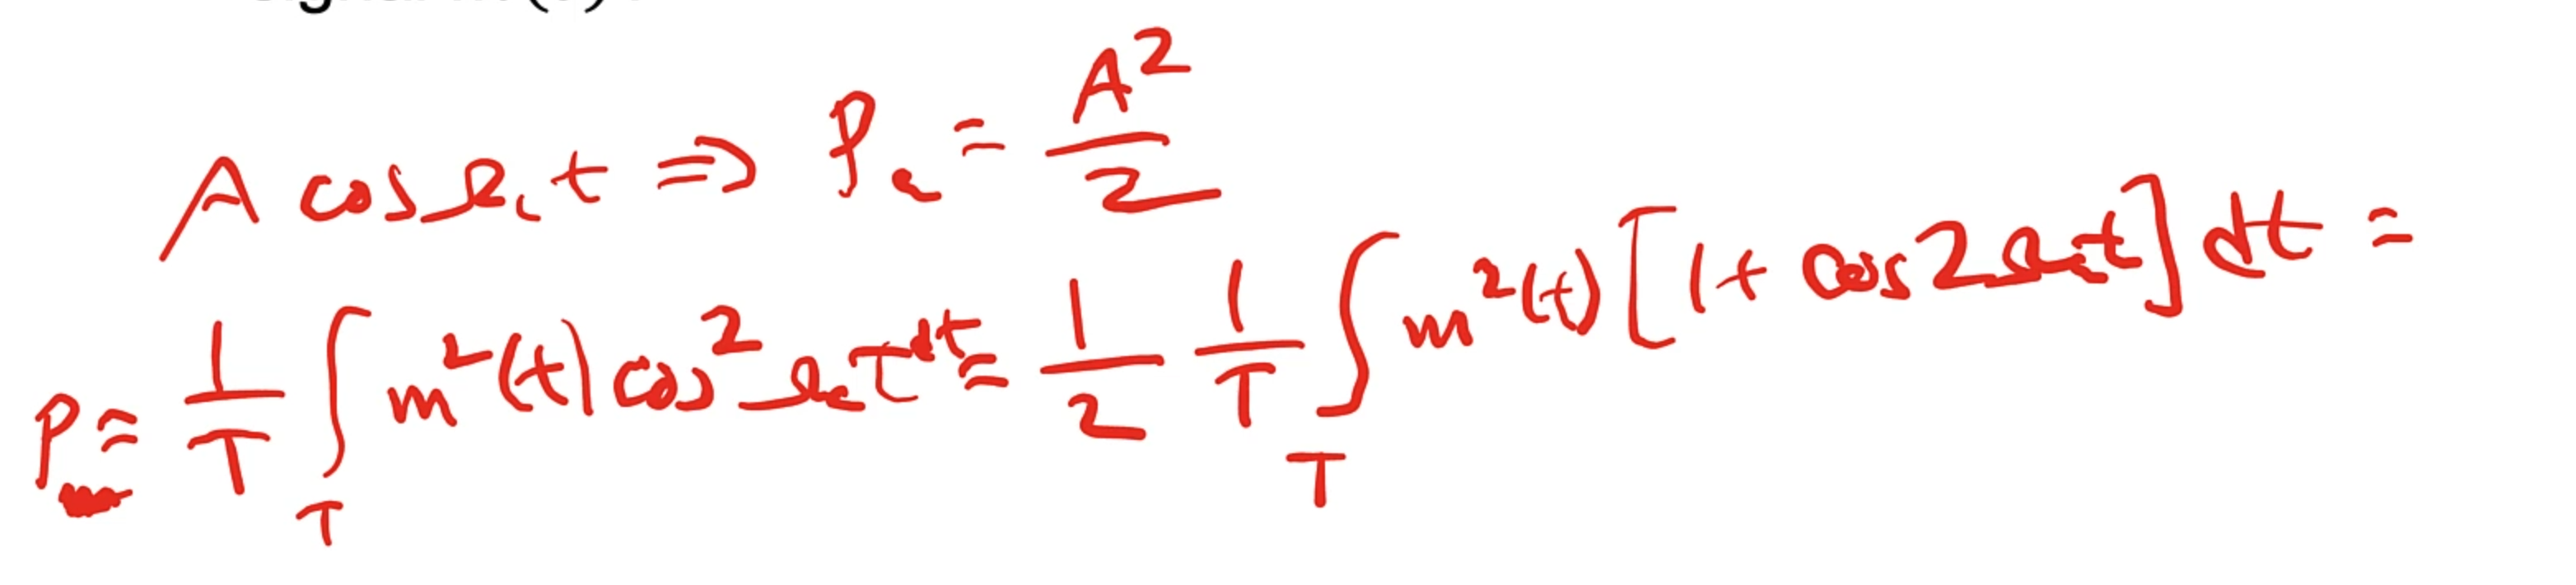 A cos Ω_c t ⇒ P_c = A²/2
P = 1/T ∫_T m²(t) cos² Ω_c t dt = 1/2 1/T ∫_T m²(t) [1 + cos 2Ω_c t] dt =